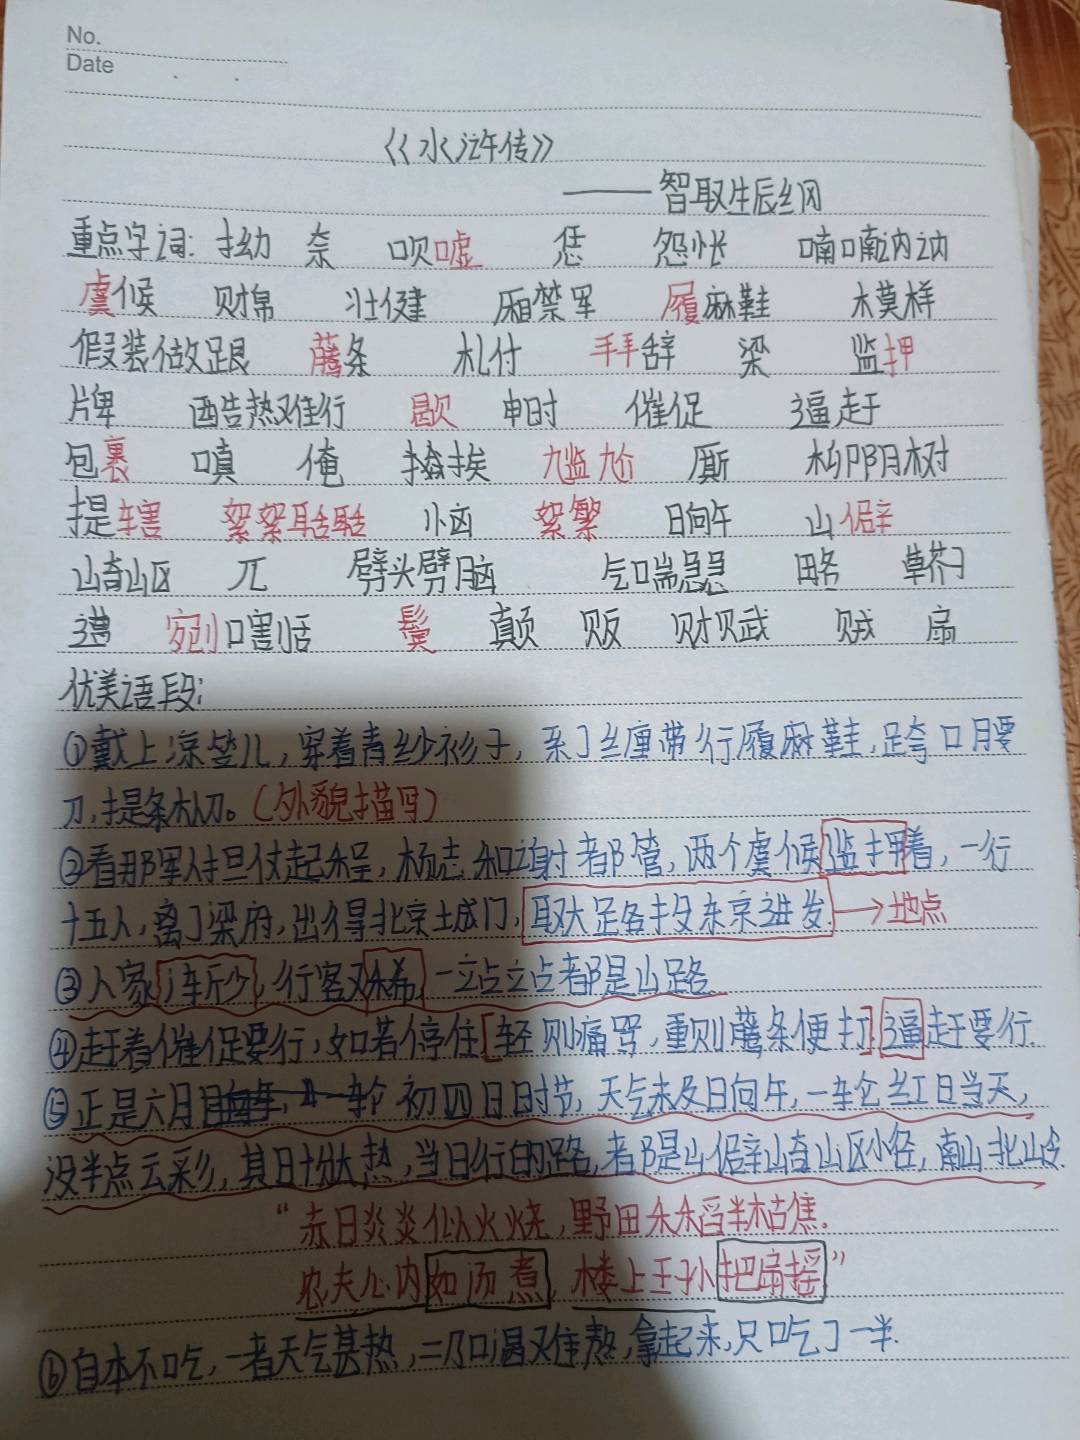 No.
Date
《水浒传》
——智取生辰纲
重点字词: 拗 奈 唢嘘 恁 怨怅 喃喃讷讷
虞候 财帛 壮健 厢禁军 履麻鞋 模样
假装做跟 藤条 札付 拜辞 梁 监押
牌 酷热难行 歇 申时 催促 逼赶
包裹 嗔 俺 揄挨 尴尬 厮 柳阴树
提辖 絮絮聒聒 恼 絮繁 日向午 山僻
崎岖 兀 劈头劈脑 气喘急急 略 草芥子
遭 剜口害恬 鬓 颠 贩 财赋 贼 扇
优美语段:
①戴上凉笠儿,穿着青纱衫子,系了缠带行履麻鞋,跨口腰
刀,提条朴刀。(外貌描写)
②看那军人担仗起程,杨志和谢都管,两个虞候监押着,一行
十五人,离了梁府,出得北京城门,取大路投东京进发.→地点
③人家渐少,行客又稀,一站站都是山路
④赶着催促要行,如若停住[轻则痛骂,重则藤条便打]逼赶要行.
⑤正是六月初四日时节,天气未及日向午,一轮红日当天,
没半点云彩,其日十分大热,当日行的路,都是山僻崎岖小径,南山北岭.
“赤日炎炎似火烧,野田禾稻半枯焦.
农夫心内如汤煮,楼上王孙把扇摇”
⑥自本不吃,一者天气甚热,二乃口渴难熬,拿起来,只吃了一半.